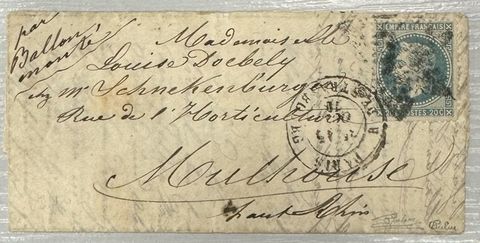 par
Ballon
monté
Mademoiselle
Louise Doebely
chez Mr Schnekenburger
Rue de l'Horticulture
Mulhouse
haut Rhin
POSTES 20C
PARIS
OCT